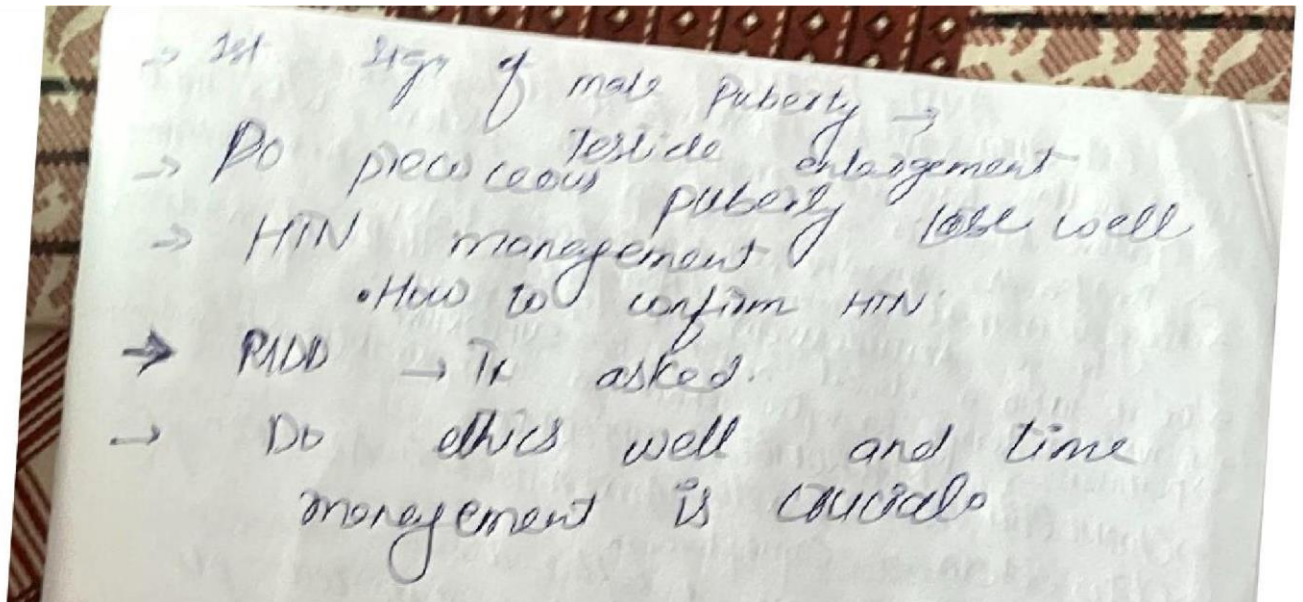 → 1st sign of male puberty →
Testicle enlargement
→ Do precoceous puberty case well
→ HTN management
• How to confirm HTN.
→ MDD → Tx asked.
→ Do ethics well and time
management is crucial.